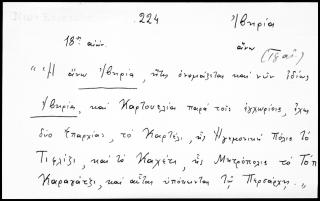 .224
Ἰβηρία
18ος αἰών.
ἄνω
(18 αἰ.)
"Ἡ ἄνω Ἰβηρία, ἥτις ὀνομάζεται καὶ νῦν ἰδίως
Ἰβηρία, καὶ Καρτουελία παρὰ τοῖς ἐγχωρίοις, ἔχει
δύο Ἐπαρχίας, τὸ Καρτέλι, ἧς Ἡγεμονικὴ Πόλις τὸ
Τιφλίζι, καὶ τὸ Καχέτι, ἧς Μητρόπολις τὸ Τόπ
Καραγάτζι, καὶ αὗται ὑπόκεινται τῷ Πέρσαρχῃ."